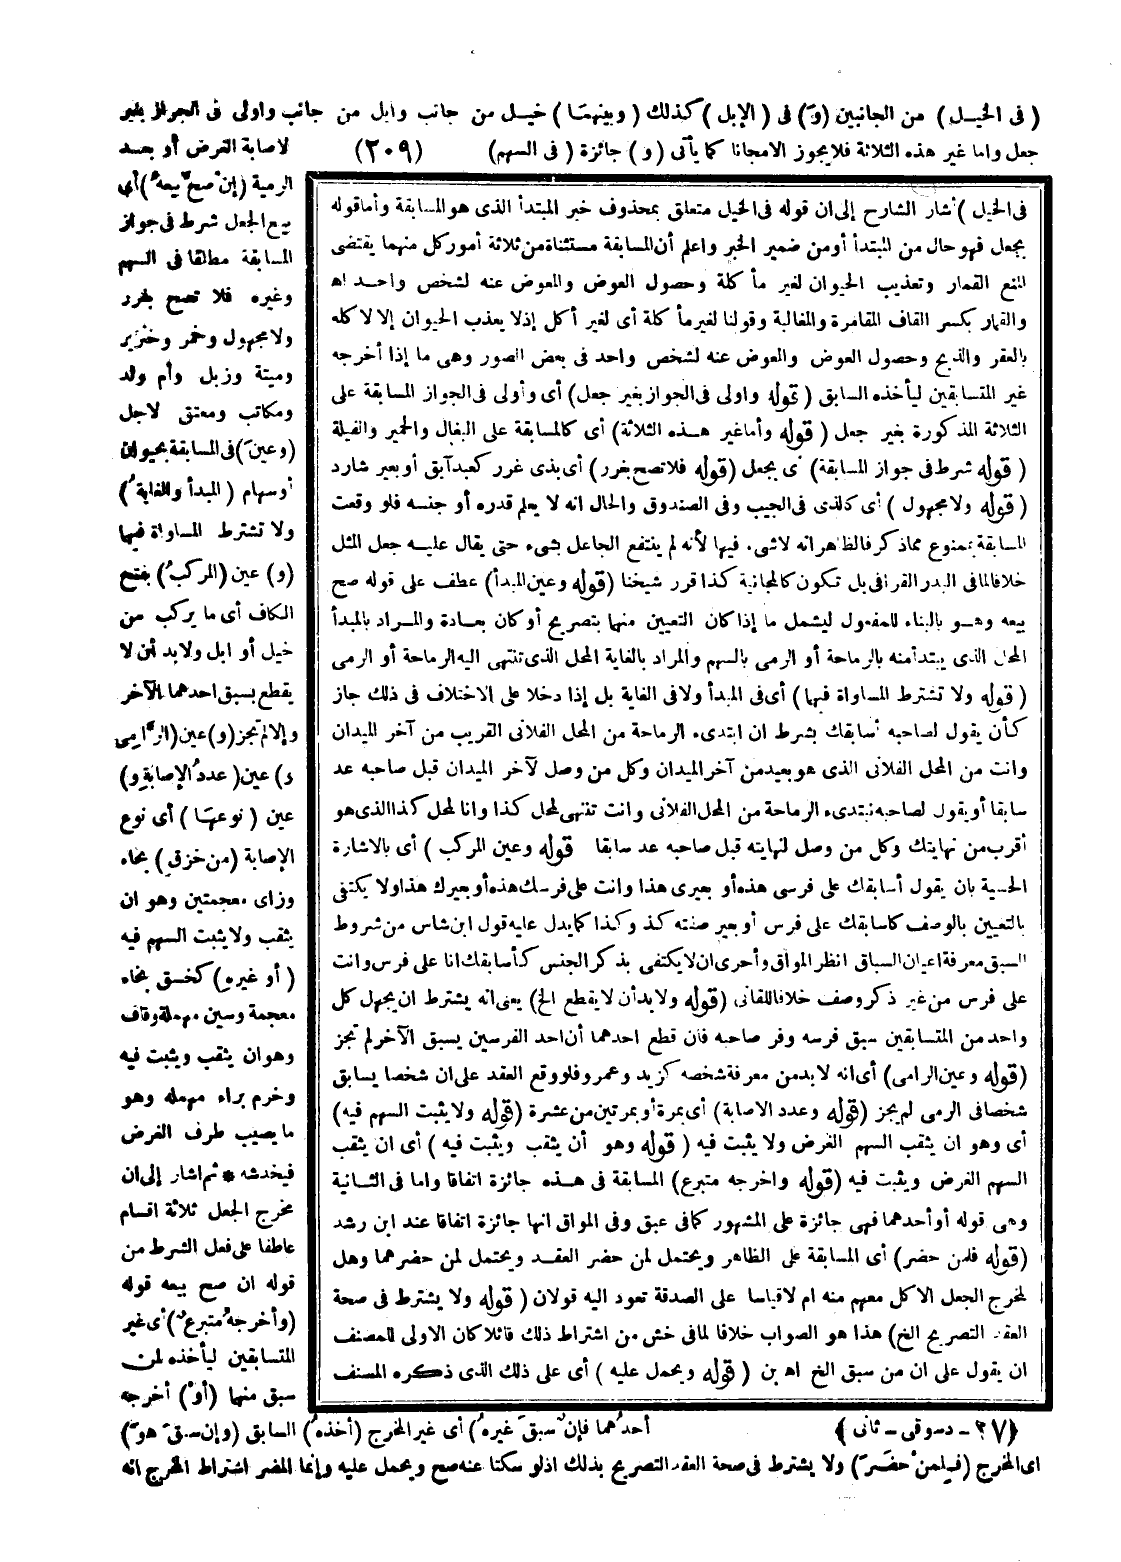 ( فى الخيل ) من الجانبين (و) فى ( الإبل ) كذلك ( وبينهما ) خيل من جانب وابل من جانب واولى فى الجواز بغير
جعل واما غير هذه الثلاثة فلا يجوز الامجانا كما يأتى ( و ) جائزة ( فى السهم) (٢٠٩) لاصابة الغرض أو بعد
الرمية (إن صح بيعه) أي
بيع الجعل شرط فى جواز
المسابقة مطلقا فى السهم
وغيره فلا تصح بغرر
ولامجهول وخمر وخنزير
وميتة وزبل وأم ولد
ومكاتب ومعتق لاجل
(وعين) فى المسابقة بحيوان
أوسهام ( المبدأ والغاية )
ولا تشترط المساواة فيها
(و) عين (المركب) بفتح
الكاف أى ما يركب من
خيل أو ابل ولابد أن لا
يقطع بسبق احدهما الآخر
والا لم تجز (و) عين (الرامى
و) عين( عدد الإصابة و)
عين ( نوعها ) أى نوع
الإصابة (من خزق) بخاء
وزاى معجمتين وهو ان
يثقب ولا يثبت السهم فيه
( أو غيره) كخسق بخاء
معجمة وسين مهملة وقاف
وهو ان يثقب ويثبت فيه
وخرم براء مهمله وهو
ما يصيب طرف الغرض
فيخدشه * ثم اشار إلى ان
مخرج الجعل ثلاثة اقسام
عاطفا على فعل الشرط من
قوله ان صح بيعه قوله
(وأخرجه متبرع) أى غير
المتسابقين ليأخذه لمن
سبق منها (أو) أخرجه
فى الخيل ) أشار الشارح إلى ان قوله فى الخيل متعلق بمحذوف خبر المبتدأ الذى هو المسابقة وأما قوله
بجعل فهو حال من المبتدأ أو من ضمير الخبر واعلم أن المسابقة مستثناة من ثلاثة أمور كل منهما يقتضى
المنع القمار وتعذيب الحيوان لغير مأ كلة وحصول العوض والمعوض عنه لشخص واحد اه
والقمار بكسر القاف المقامرة والمغالبة وقولنا لغير مأ كلة أى لغير أكل إذ لا يعذب الحيوان إلا لا كله
بالعقر والذبح وحصول العوض والمعوض عنه لشخص واحد فى بعض الصور وهى ما إذا أخرجه
غير المتسابقين ليأخذه السابق ( قوله واولى فى الجواز بغير جعل) أى وأولى فى الجواز المسابقة على
الثلاثة المذكورة بغير جعل ( قوله وأما غير هذه الثلاثة) أى كالمسابقة على البغال والحمير والفيلة
( قوله شرط فى جواز المسابقة) أى بجعل (قوله فلا تصح بغرر) أى بذى غرر كعبد آبق أو بعير شارد
( قوله ولا مجهول ) أى كالذى فى الجيب وفى الصندوق والحال انه لا يعلم قدره أو جنسه فلو وقعت
المسابقة بممنوع مما ذكر فالظاهر انه لا شىء فيها لأنه لم ينتفع الجاعل بشىء حتى يقال عليه جعل المثل
خلافا لما فى البدر القرافى بل تكون كالمجانية كذا قرر شيخنا (قوله وعين المبدأ) عطف على قوله صح
بيعه وهو بالبناء للمفعول ليشمل ما إذا كان التعيين منها بتصريح أو كان بعادة والمراد بالمبدأ
المحل الذى يبتدأ منه بالرماحة أو الرمى بالسهم والمراد بالغاية المحل الذى تنتهى اليه الرماحة أو الرمى
( قوله ولا تشترط المساواة فيها) أى فى المبدأ ولا فى الغاية بل إذا دخلا على الاختلاف فى ذلك جاز
كأن يقول لصاحبه أسابقك بشرط ان ابتدىء الرماحة من المحل الفلانى القريب من آخر الميدان
وانت من المحل الفلانى الذى هو بعيد من آخر الميدان وكل من وصل لآخر الميدان قبل صاحبه عد
سابقا أو يقول لصاحبه نبتدىء الرماحة من المحل الفلانى وانت تنتهى لمحل كذا وانا لمحل كذا الذى هو
أقرب من نهايتك وكل من وصل لنهايته قبل صاحبه عد سابقا قوله وعين المركب ) أى بالاشارة
الحسية بان يقول أسابقك على فرسى هذه أو بعيرى هذا وانت على فرسك هذه أو بعيرك هذا ولا يكتفى
بالتعيين بالوصف كأسابقك على فرس أو بعير صفته كذ وكذا كما يدل عليه قول ابن شاس من شروط
السبق معرفة اعيان السباق انظر المواق وأحرى ان لا يكتفى بذكر الجنس كأسابقك انا على فرس وانت
على فرس من غير ذكر وصف خلافا للقانى (قوله ولابد أن لا يقطع الخ) يعنى انه يشترط ان يجهل كل
واحد من المتسابقين سبق فرسه وفر صاحبه فان قطع احدهما أن احد الفرسين يسبق الآخر لم تجز
(قوله وعين الرامى) أى انه لابد من معرفة شخصه كزيد وعمرو فلو وقع العقد على ان شخصا يسابق
شخصا فى الرمى لم يجز (قوله وعدد الاصابة) أى بمرة أو بمرتين من عشرة (قوله ولا يثبت السهم فيه)
أى وهو ان يثقب السهم الغرض ولا يثبت فيه ( قوله وهو أن يثقب ويثبت فيه ) أى ان يثقب
السهم الغرض ويثبت فيه (قوله واخرجه متبرع) المسابقة فى هذه جائزة اتفاقا واما فى الثانية
وهى قوله أو أحدهما فهى جائزة على المشهور كما فى عبق وفى المواق انها جائزة اتفاقا عند ابن رشد
(قوله فلمن حضر) أى المسابقة على الظاهر ويحتمل لمن حضر العقد ويحتمل لمن حضرهما وهل
لمخرج الجعل الاكل معهم منه ام لا قياسا على الصدقة تعود اليه قولان ( قوله ولا يشترط فى صحة
العقد التصريح الخ) هذا هو الصواب خلافا لما فى خش من اشتراط ذلك قائلا كان الاولى للمصنف
ان يقول على ان من سبق الخ اه بن ( قوله ويحمل عليه ) أى على ذلك الذى ذكره المصنف
(٢٧ - دسوقى - ثانى )
أحدهما فإن سبق غيره) أى غير المخرج (أخذه) السابق (وإن سبق هو)
اى المخرج (فلمن حضر) ولا يشترط فى صحة العقد التصريح بذلك اذلو سكتا عنه صح ويحمل عليه وإنما المضر اشتراط المخرج انه